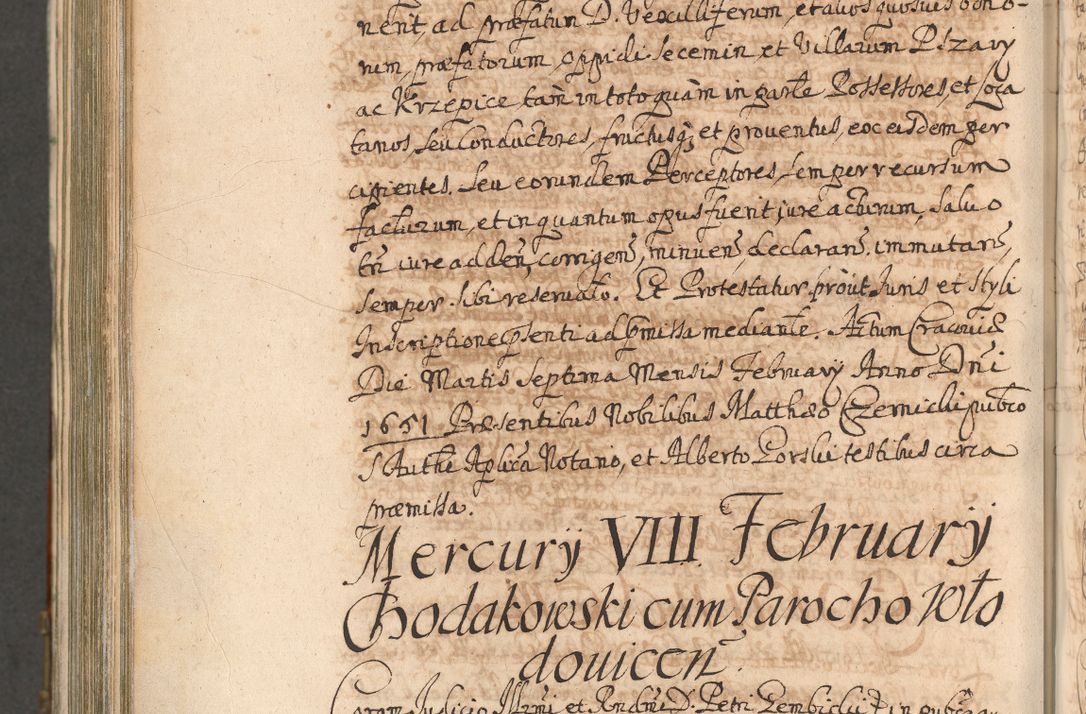 nent, ad præfatum D. Vexilliferum, et alios quosvis bono-
rum, præfatorum, oppidi Secemin et Villarum Pszary
ac Krzepice, tam in toto quàm in parte Possessores, et loca
tarios, seu Conductores, fructusq; et proventus, ex eisdem per
cipientes. Seu eorundem Perceptores, semper recursum
facturum, et in quantum opus fuerit jure acturum, Salvo
tn̄ iure adden̄, corrigen̄, minuen̄, declaran̄. immutan̄,
semper sibi reservato. Et Protestatur, proùt Juris et styli
Inscriptione p̄senti ad p̄missa mediante. Actum Cracoviæ
Die Martis Septima Mensis February Anno Dn̄i
1651 Præsentibus Nobilibus Matthæo Czernicki publco
S Autht Aplica Notario, et Alberto Gorski testibus circa
præmissa.
Mercury VIII February
Chodakowski cum Parocho Wło
dovicen̄.
Coram Judicio Illrmi et Rndmi D. Petri Gembicki